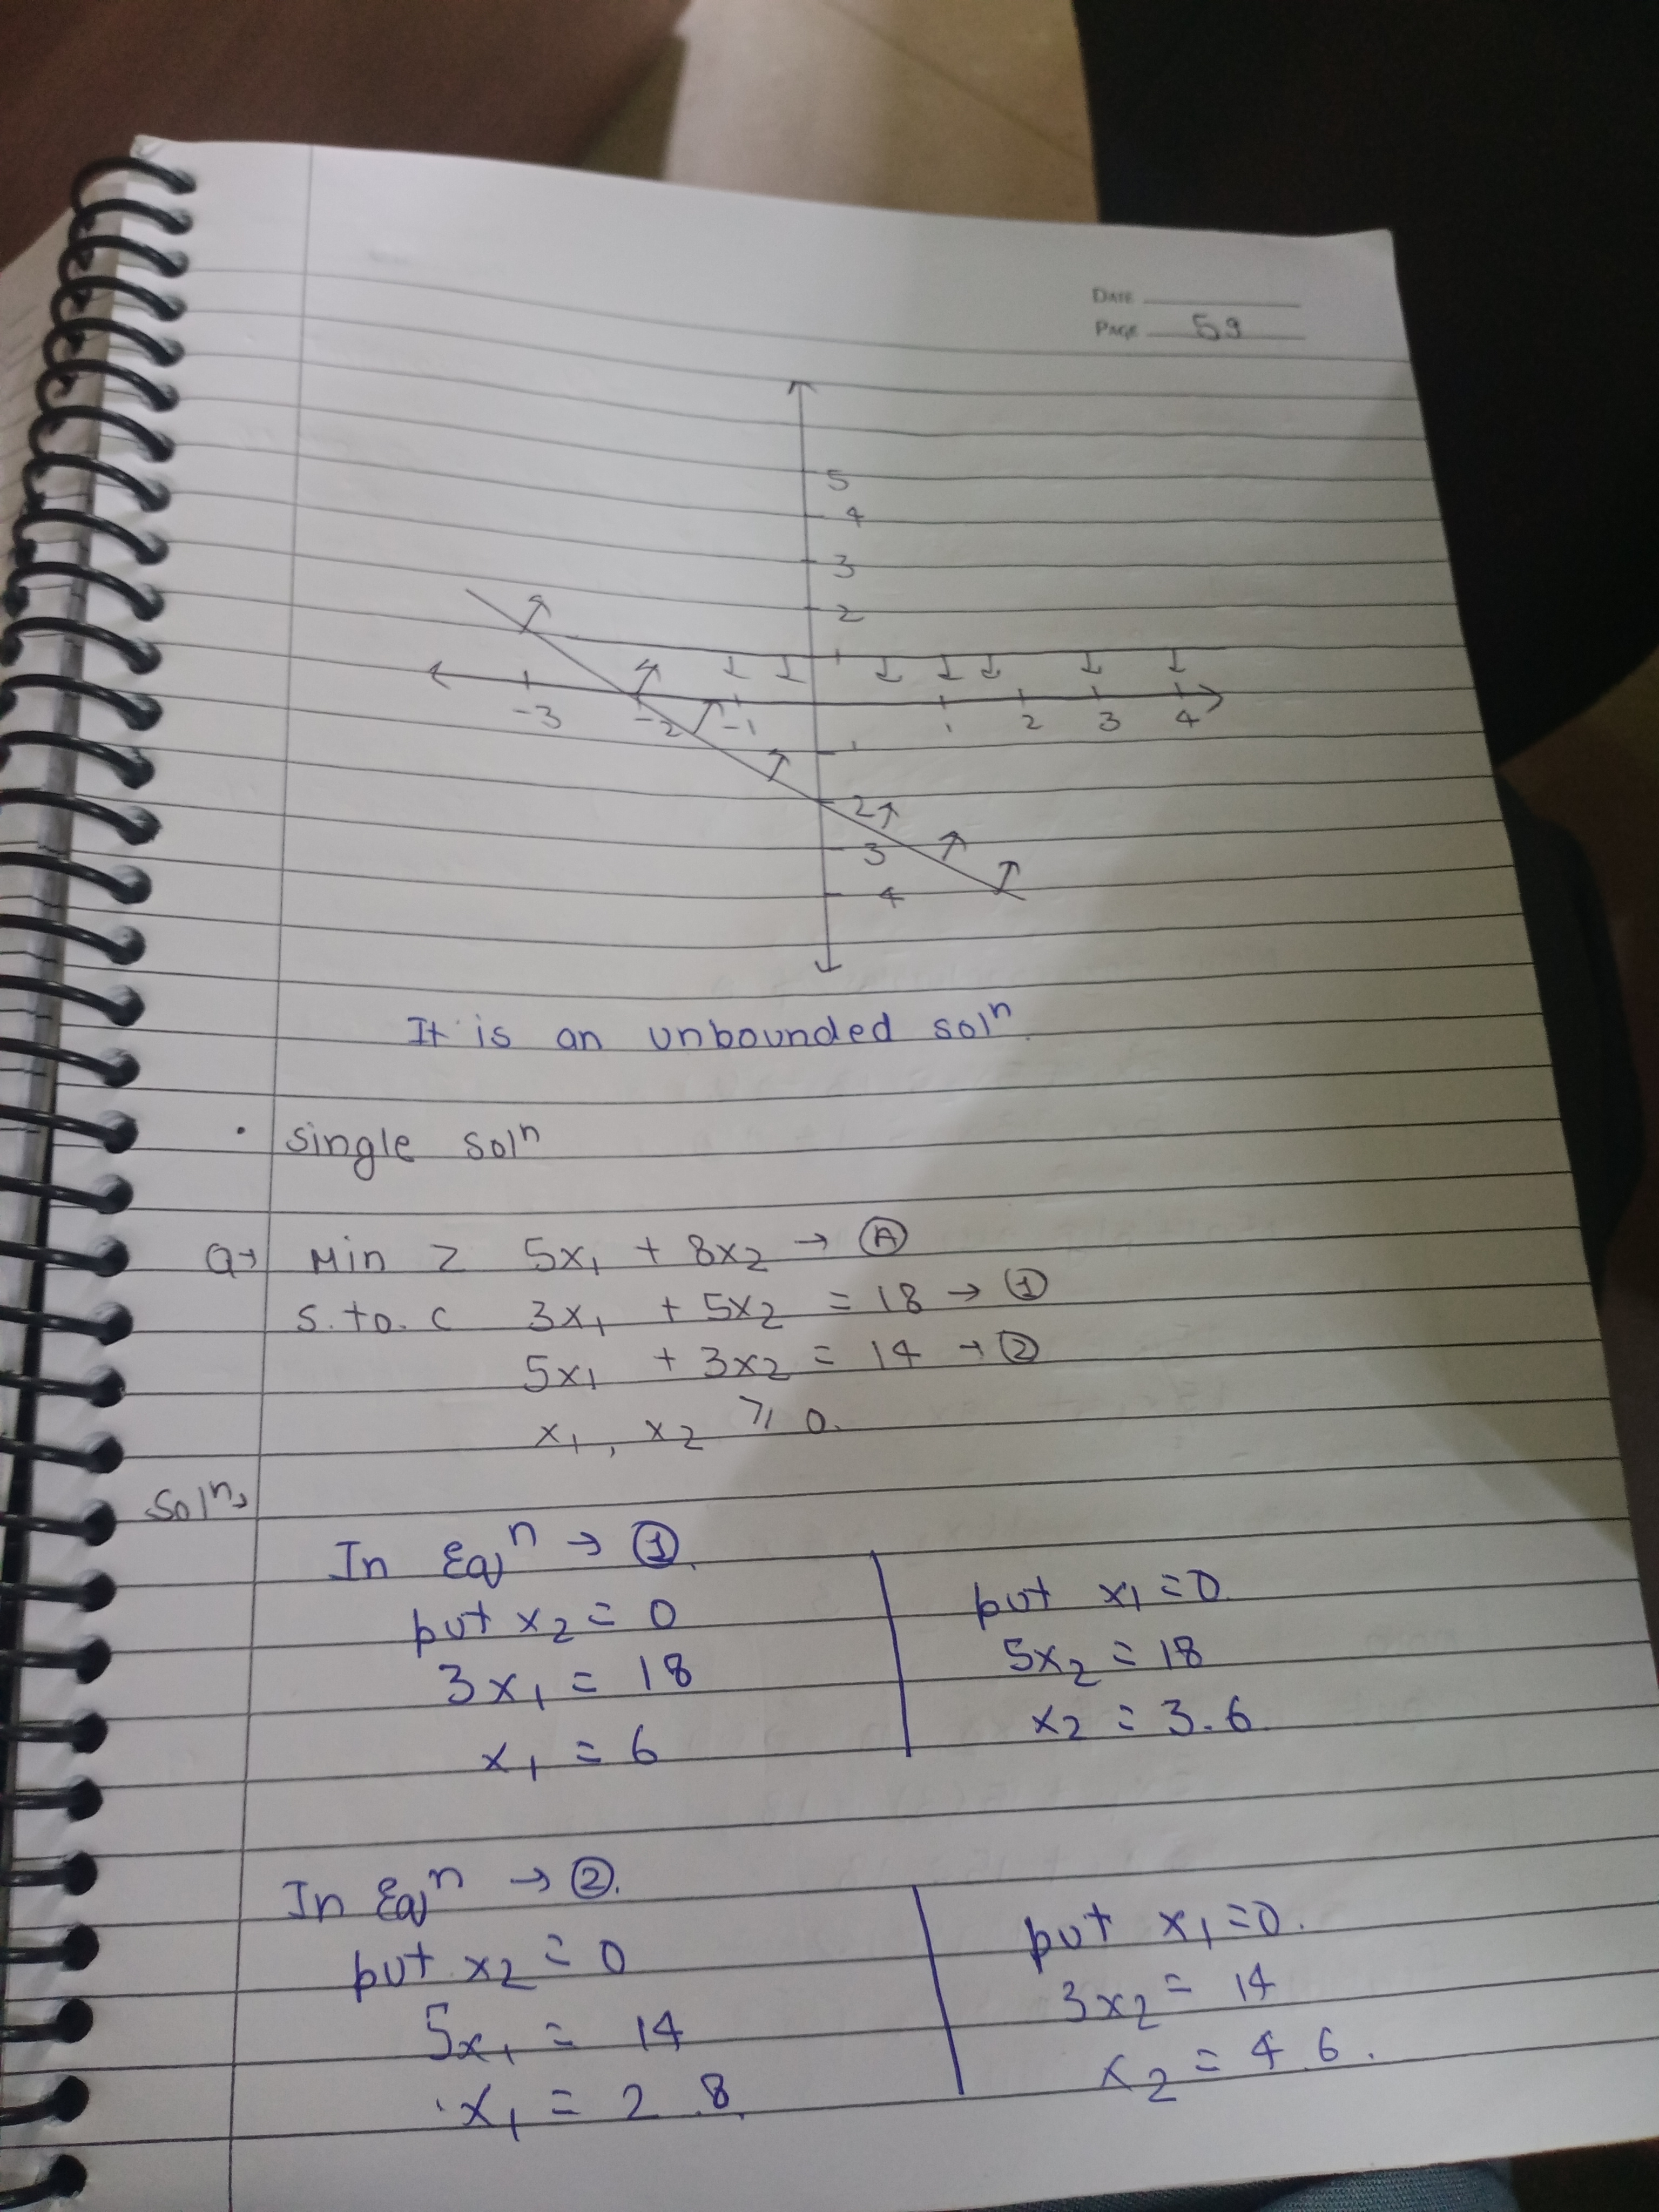 DATE
PAGE 59
5
4
3
2
1
-3 -2 -1 1 2 3 4
1
2
3
4
It is an unbounded solⁿ.
• single solⁿ
Q→ Min Z 5x₁ + 8x₂ → Ⓐ
S. to. c 3x₁ + 5x₂ = 18 → ①
5x₁ + 3x₂ = 14 → ②
x₁, x₂ ⩾ 0.
Solⁿ→
In Eqⁿ → ①.
put x₂ = 0
3x₁ = 18
x₁ = 6
put x₁ = 0.
5x₂ = 18
x₂ = 3.6
In Eqⁿ → ②.
put x₂ = 0
5x₁ = 14
x₁ = 2.8
put x₁ = 0.
3x₂ = 14
x₂ = 4.6.